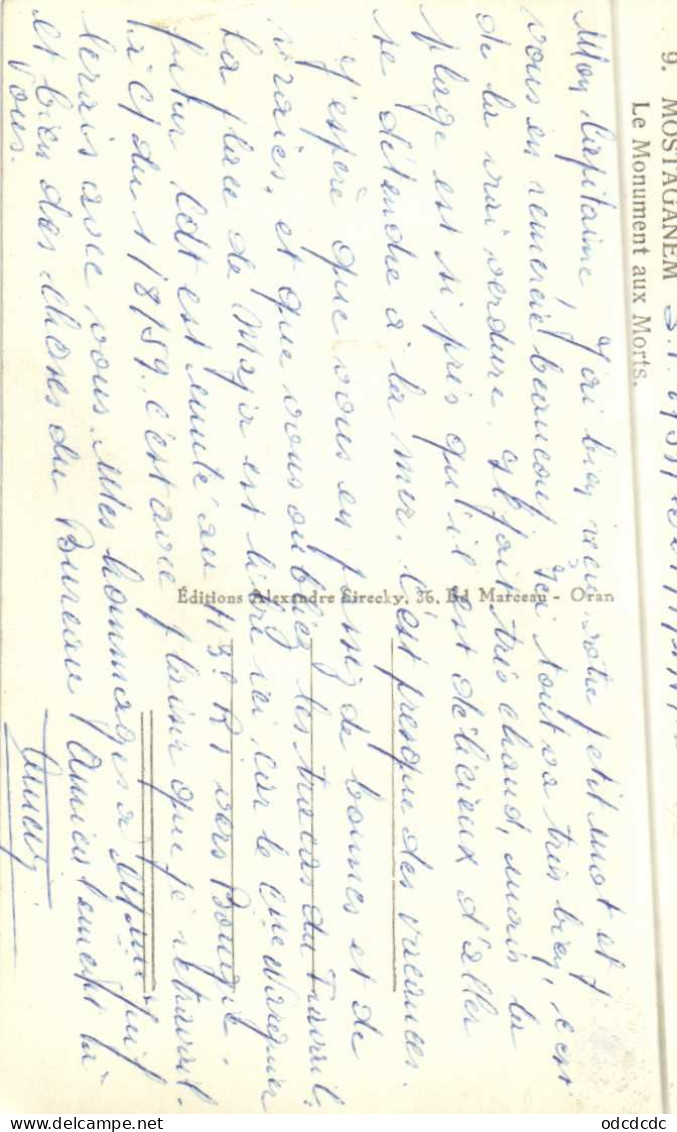 9. MOSTAGANEM
Le Monument aux Morts.
Mon Capitaine, J'ai bien reçu votre petit mot et j'
vous en remercie beaucoup. Ici tout va très bien, c'est
de la vrai verdure. Il fait très chaud, mais la
plage est si près qu'il est délicieux d'aller
se détendre à la mer. C'est presque des vacances.
J'espère que vous en de bonnes et de
vraies, et que vous oubliez les tracas du Travail.
La place de major est libre ici car le
futur Cdt est muté au R I vers Bougie.
à c/ du 1/8/59. C'est avec plaisir que je retravail-
lerais avec vous. Mes hommages à
et bien des choses du Bureau. Amicalement à
Vous.
Éditions Alexandre Sirecky, 36, Bd Marceau - Oran
odcdcdc